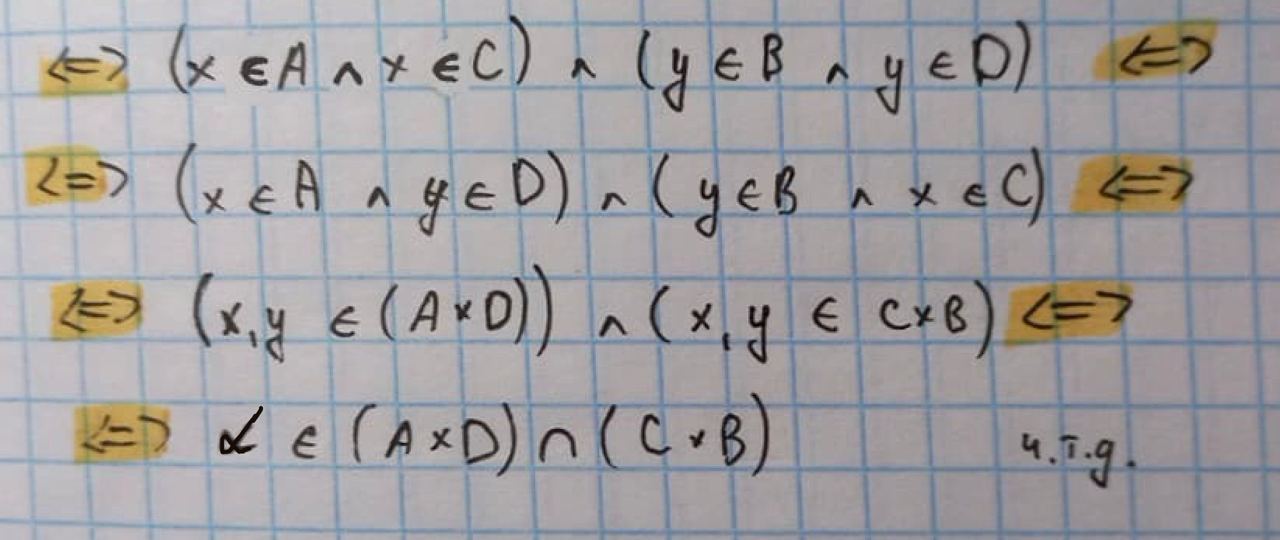 <=> (x ∈ A ∧ x ∈ C) ∧ (y ∈ B ∧ y ∈ D) <=>
<=> (x ∈ A ∧ y ∈ D) ∧ (y ∈ B ∧ x ∈ C) <=>
<=> (x,y ∈ (A×D)) ∧ (x,y ∈ C×B) <=>
<=> α ∈ (A×D) ∩ (C×B) ч.т.д.